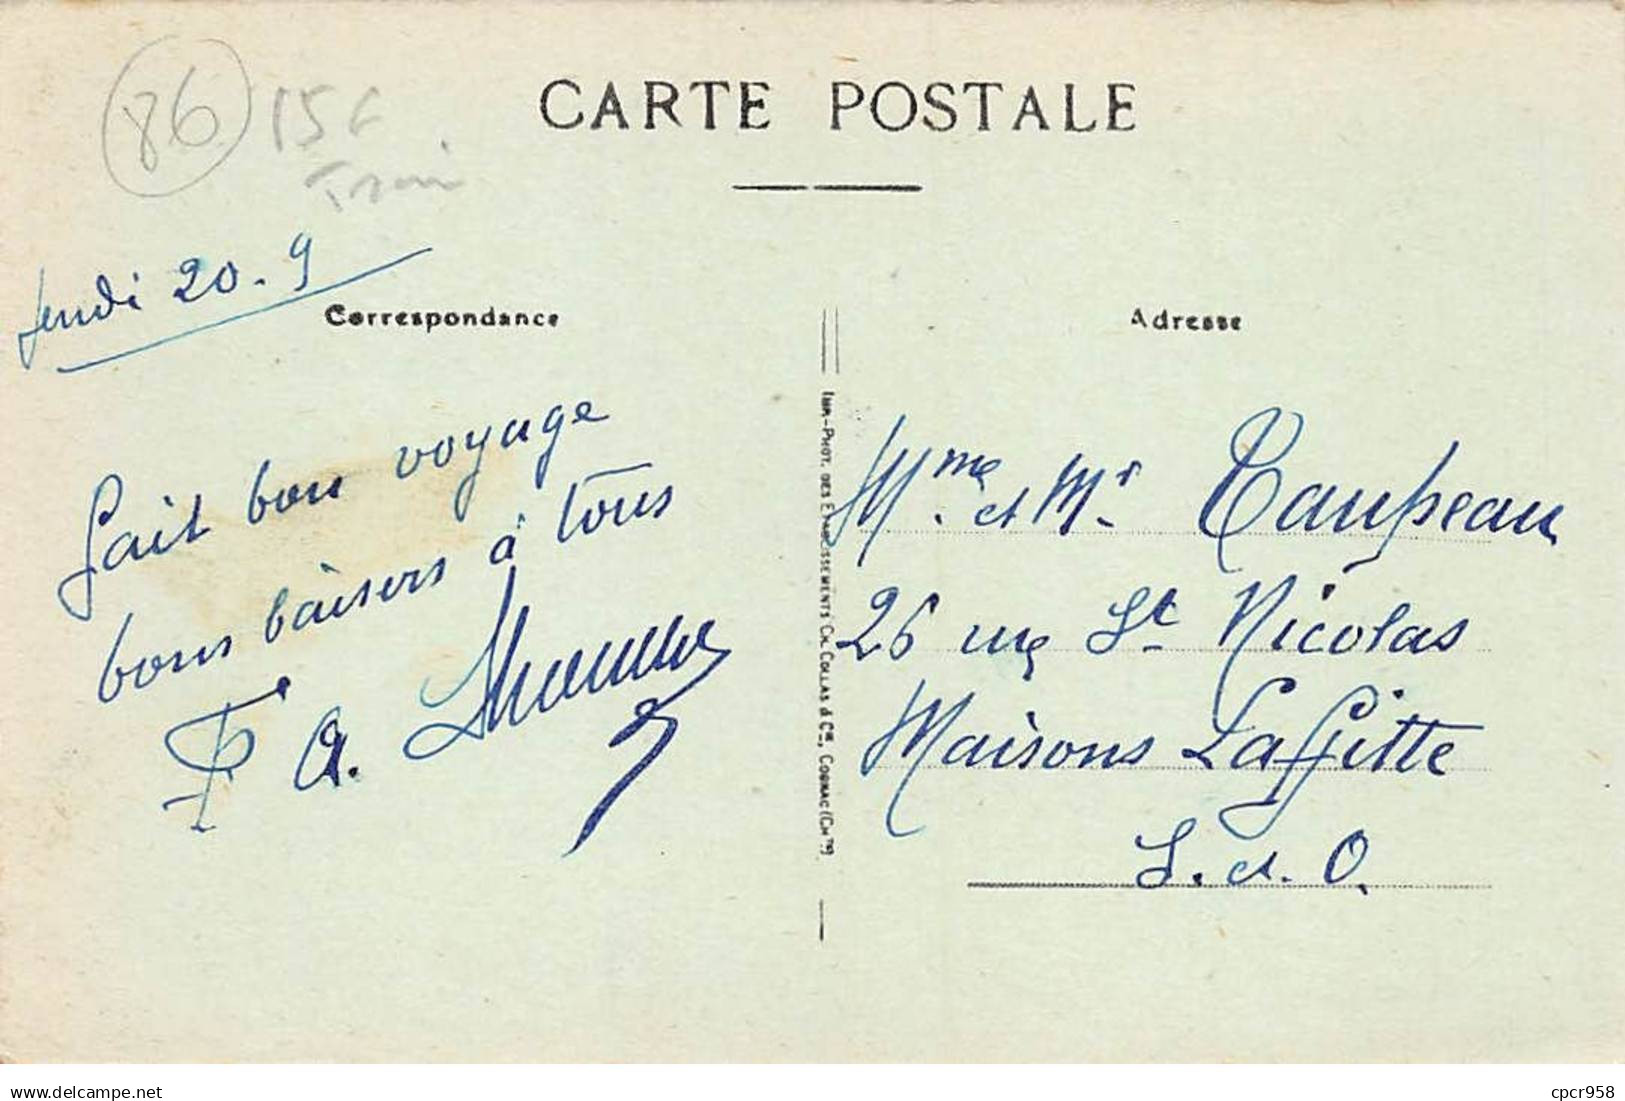 86 15€
Train
CARTE POSTALE
Jeudi 20.9
Correspondance
Adresse
Fait bon voyage
bons baisers à tous
A.
IMP.-PHOT. DES ETABLISSEMENTS CH. COLLAS & Cie, COGNAC (Chte)
Mme. et Mr. Taupeau
26 rue St Nicolas
Maisons Laffitte
S. et. O.
cpcr958